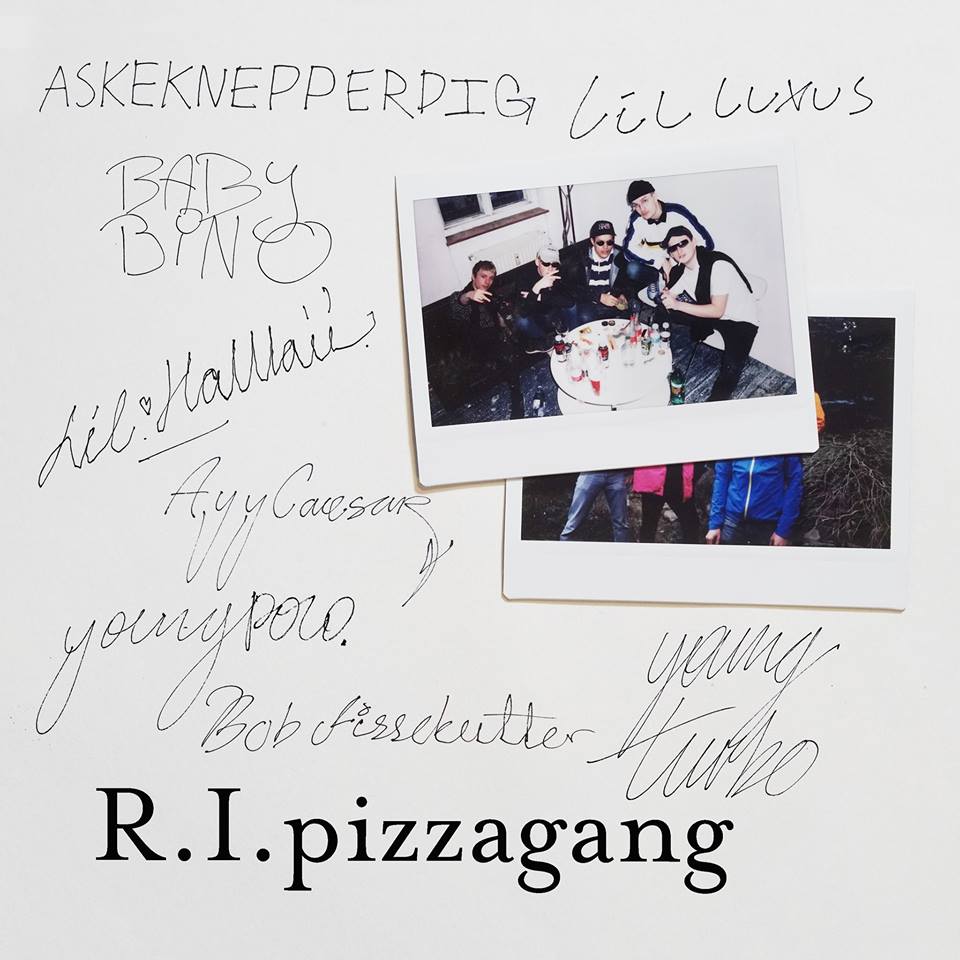 ASKEKNEPPERDIG
LiL LUXUS
BABY
BiNO
Lil. Hawaii.
AyyCaesar
youngpolo.
Bob fissekutter
young
turbo
R.I.pizzagang